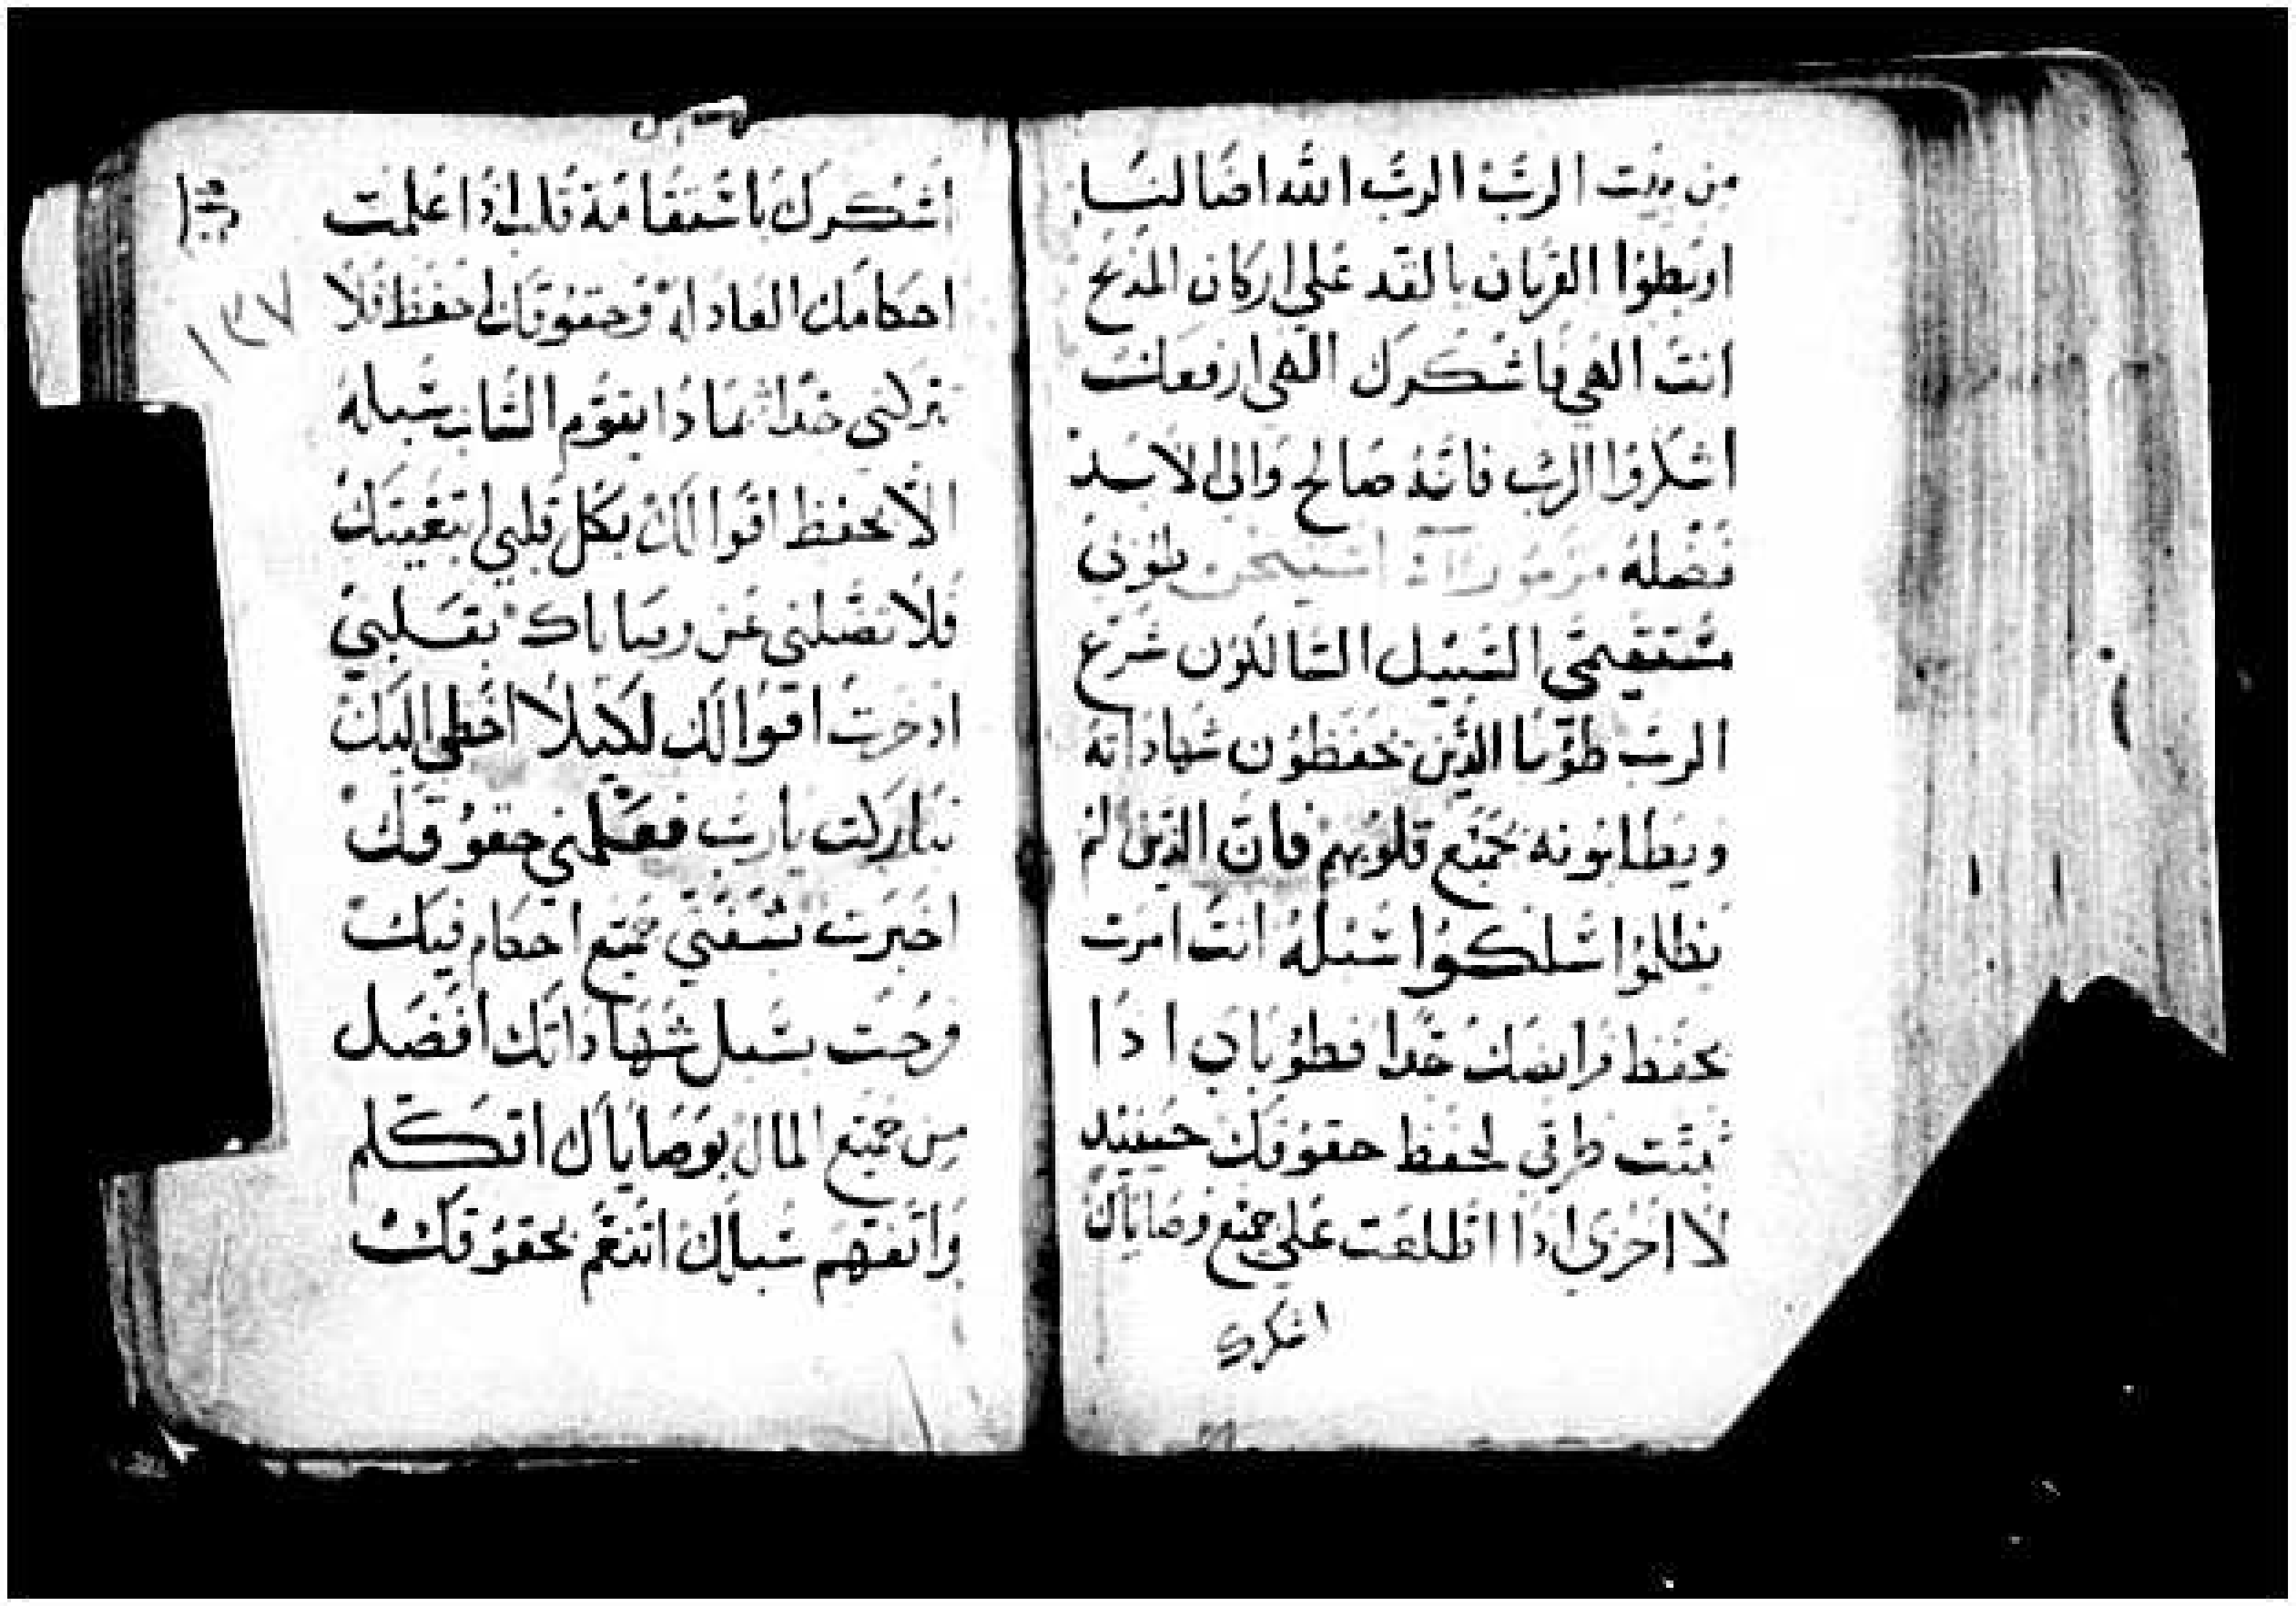 من بيت الرب الرب الله اضا لنا
اوبطوا القربان بالقد على اركان المذبح
انت الهي فاشكرك الهي ارفعك
اشكروا الرب فانه صالح والى الابد
فضله مزمور طوبى
مستقيمي السبيل السالكون شرع
الرب طوبا الذين يحفظون شهاداته
ويطلبونه بجميع قلوبهم فان الذين لم
يظلموا سلكوا سبله انت امرت
بحفظ فرايضك جدا فطوباي اذا
ثبتت طرقي لحفظ حقوقك حينيد
لا اخزى اذا اطلعت على جميع وصاياك
اشكرك
اشكرك باستقامة قلب اذا علمت
احكامك العادله وحقوقك احفظ فلا
تتركني جدا بماذا يقوم الشاب سبله
الا بحفظ اقوالك بكل قلبي ابتغيتك
فلا تضلني عن وصاياك بقلبي
اذخرت اقوالك لكيلا اخطي اليك
تباركت يارب فعلمني حقوقك
اخبرت بشفتي جميع احكام فيك
فرحت بسبل شهاداتك افضل
من جميع المال بوصاياك اتكلم
واتفهم سبلك اتنغم بحقوقك
١٣٧